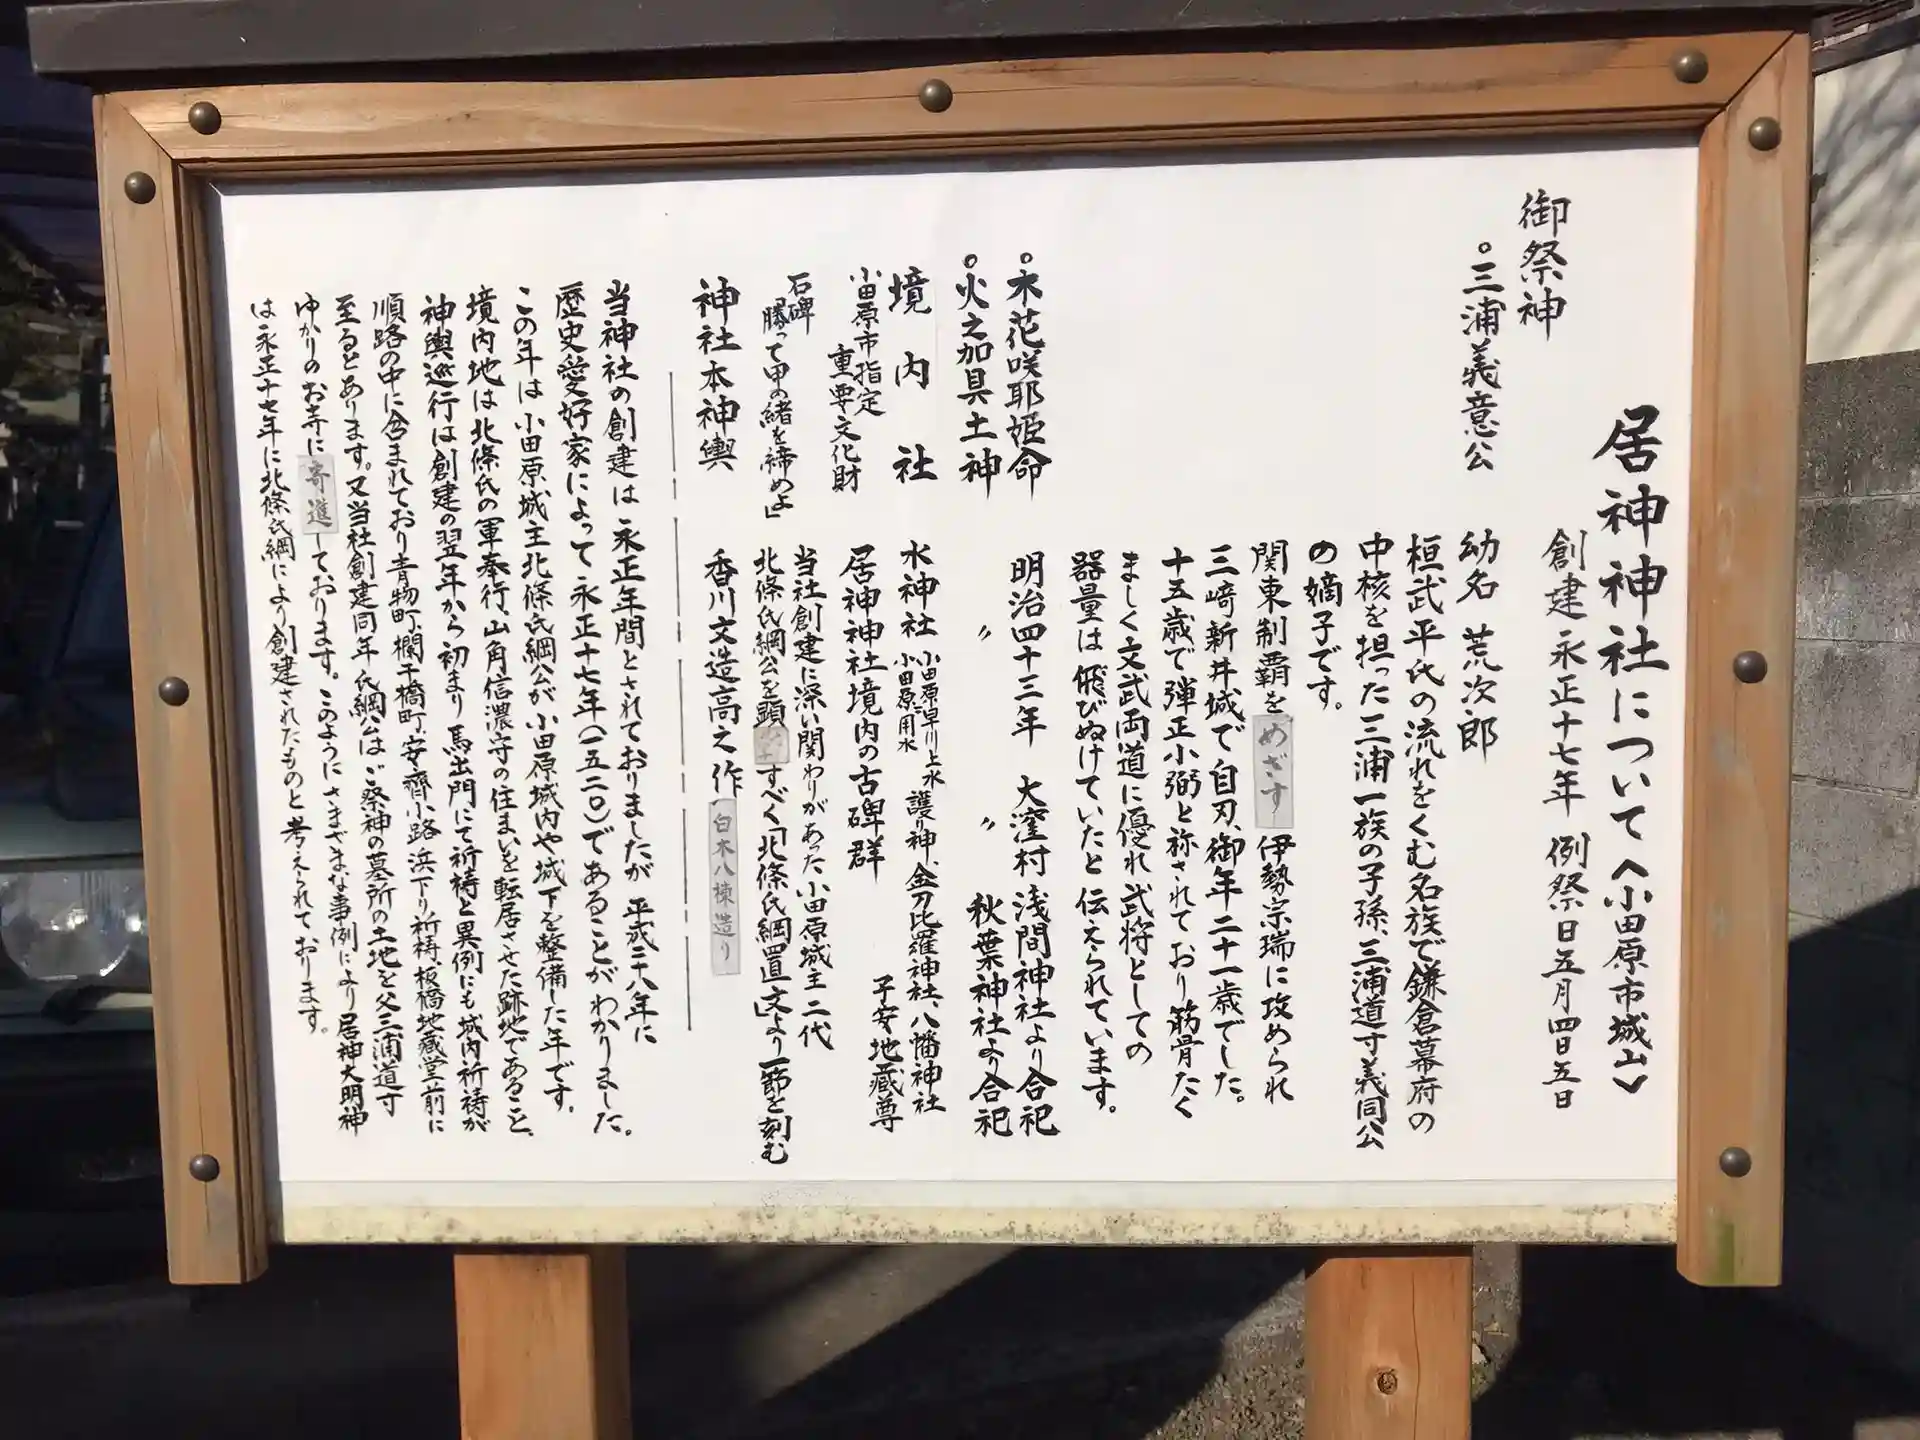 居神神社について〈小田原市城山〉
創建 永正十七年 例祭日五月四日五日
御祭神
○三浦義意公
幼名 荒次郎
桓武平氏の流れをくむ名族で鎌倉幕府の
中核を担った三浦一族の子孫、三浦道寸義同公
の嫡子です。
関東制覇をめざす伊勢宗瑞に攻められ
三﨑新井城で自刃、御年二十一歳でした。
十五歳で弾正小弼と称されており筋骨たく
ましく文武両道に優れ武将としての
器量は飛びぬけていたと伝えられています。
○木花咲耶姫命 明治四十三年 大窪村 浅間神社より合祀
○火之加具土神 〃 〃 秋葉神社より合祀
境内社 水神社 小田原早川上水 小田原用水 護り神、金刀比羅神社、八幡神社
子安地蔵尊
小田原市指定
重要文化財
居神神社境内の古碑群
石碑
「勝って甲の緒を締めよ」
当社創建に深い関わりがあった小田原城主二代
北條氏綱公を顕すべく「北條氏綱置文」より一節を刻む
神社本神輿 香川文造高之作 白木八棟造り
当神社の創建は永正年間とされておりましたが平成二十八年に
歴史愛好家によって永正十七年(一五二〇)であることがわかりました。
この年は小田原城主北條氏綱公が小田原城内や城下を整備した年です。
境内地は北條氏の軍奉行、山角信濃守の住まいを転居させた跡地であること、
神輿巡行は創建の翌年から初まり馬出門にて祈祷と異例にも城内祈祷が
順路の中に含まれており青物町、欄干橋町、安齊小路、浜下り祈祷、板橋地蔵堂前に
至るとあります。又当社創建同年氏綱公はご祭神の墓所の土地を父三浦道寸
ゆかりのお寺に寄進しております。このようにさまざまな事例により居神大明神
は永正十七年に北條氏綱により創建されたものと考えられております。